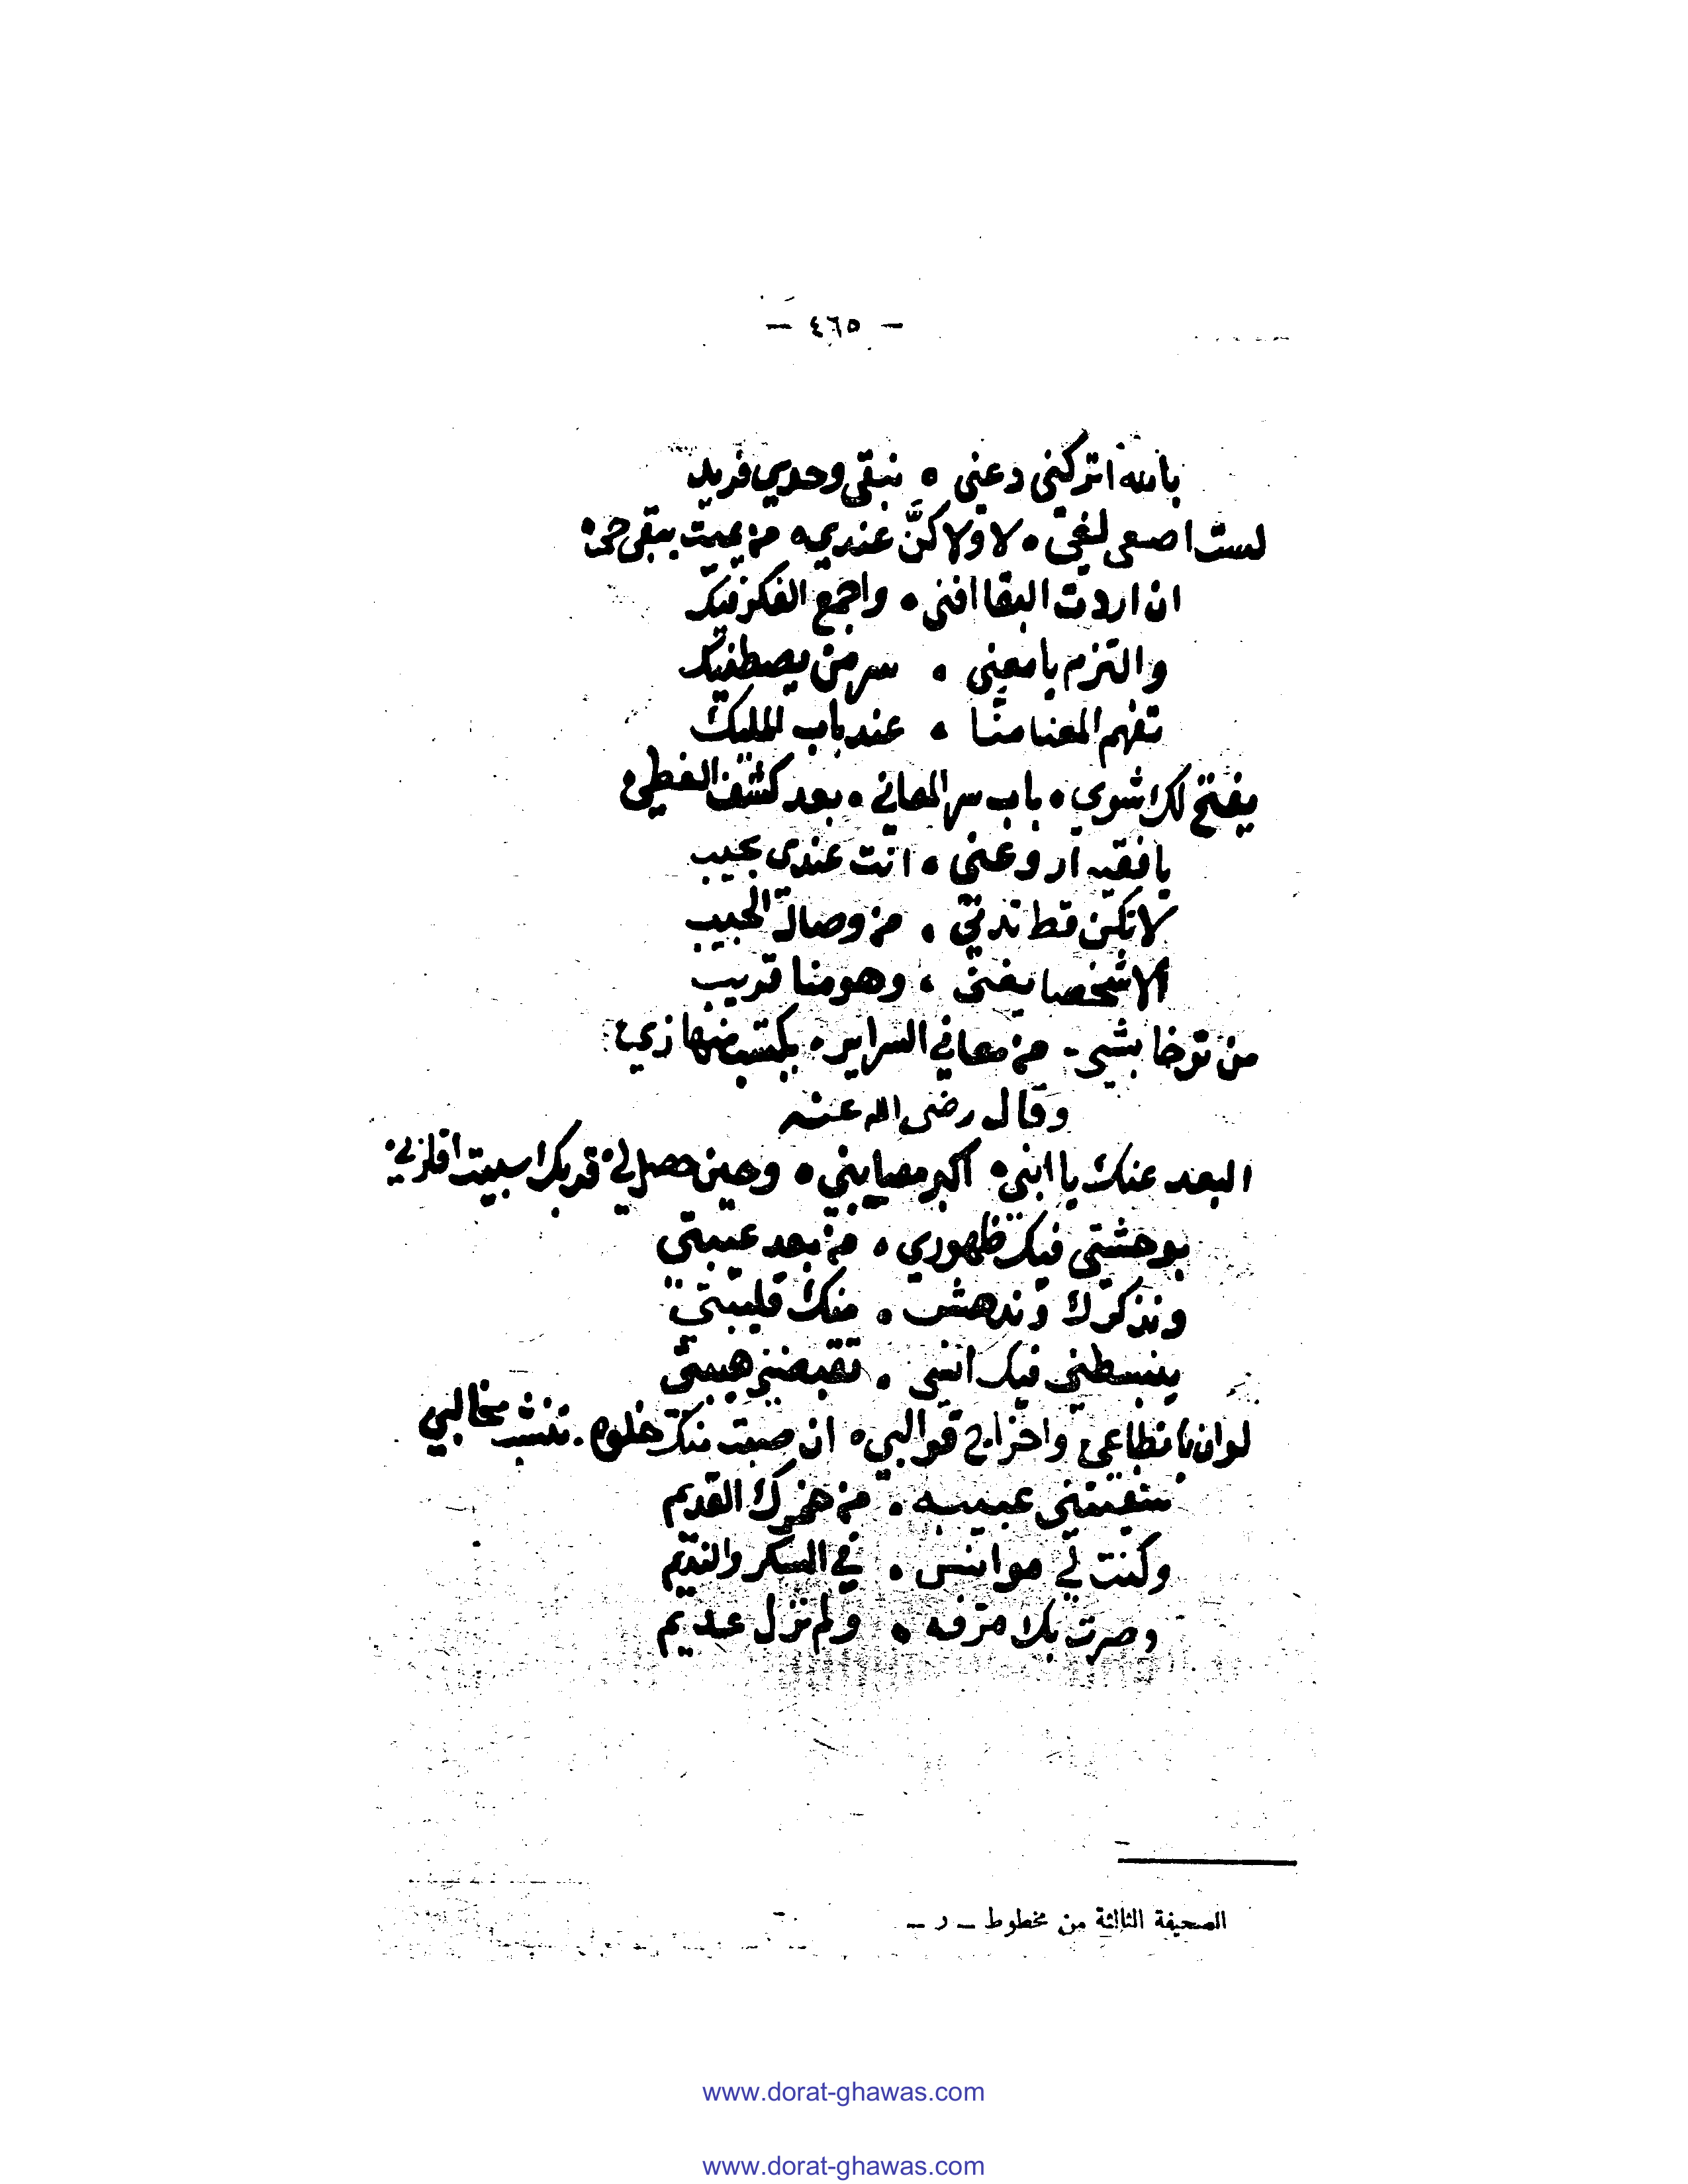 — ٤٦٥ —
بالله اتركني دعني ه نبقى وحدي فريد
لست اصعى لغى ه لا ولا كنّ عندي ه من يميت يبقى حي ه
ان اردت البقا افنى ه واجمع الفكر فيك
والتزم يا معنى ه سر من يصطفيك
تفهم المعنا منّا ه عند باب المليك
يفتح لك اشوي ه باب سر المعاني ه بعد كشف الغطي ه
يا فقيه ارو عني ه انت عندي نجيب
لا تكن قط تدني ه من وصال الحبيب
ألا شخصا يفنى ، وهو منا قريب
من توخا بشي - من معاني السراير ه يكتسب منها زي
وقال رضى الله عنه
البعد عنك يا ابني ه اكبر مصايبي ه وحين حصل لي قربك اسبيت اقاربي
بوحشتي فيك ظهوري ه من بعد غيبتي
ونذكرك وندهش ه منك قليبتي
ينبسطني فيك انسي ه تقبضني هيبتي
لو ان بانطباعي واخراج قوالبي ه ان صبت منك خلوه . تنشب مخالبي
سقيتني عبيبه ه من خمرك القديم
وكنت لي موانس ه في السكر والنديم
وصرت بك مرفه ه ولم نزل عديم
الصحيفة الثالثة من مخطوط — ر —
www.dorat-ghawas.com
www.dorat-ghawas.com